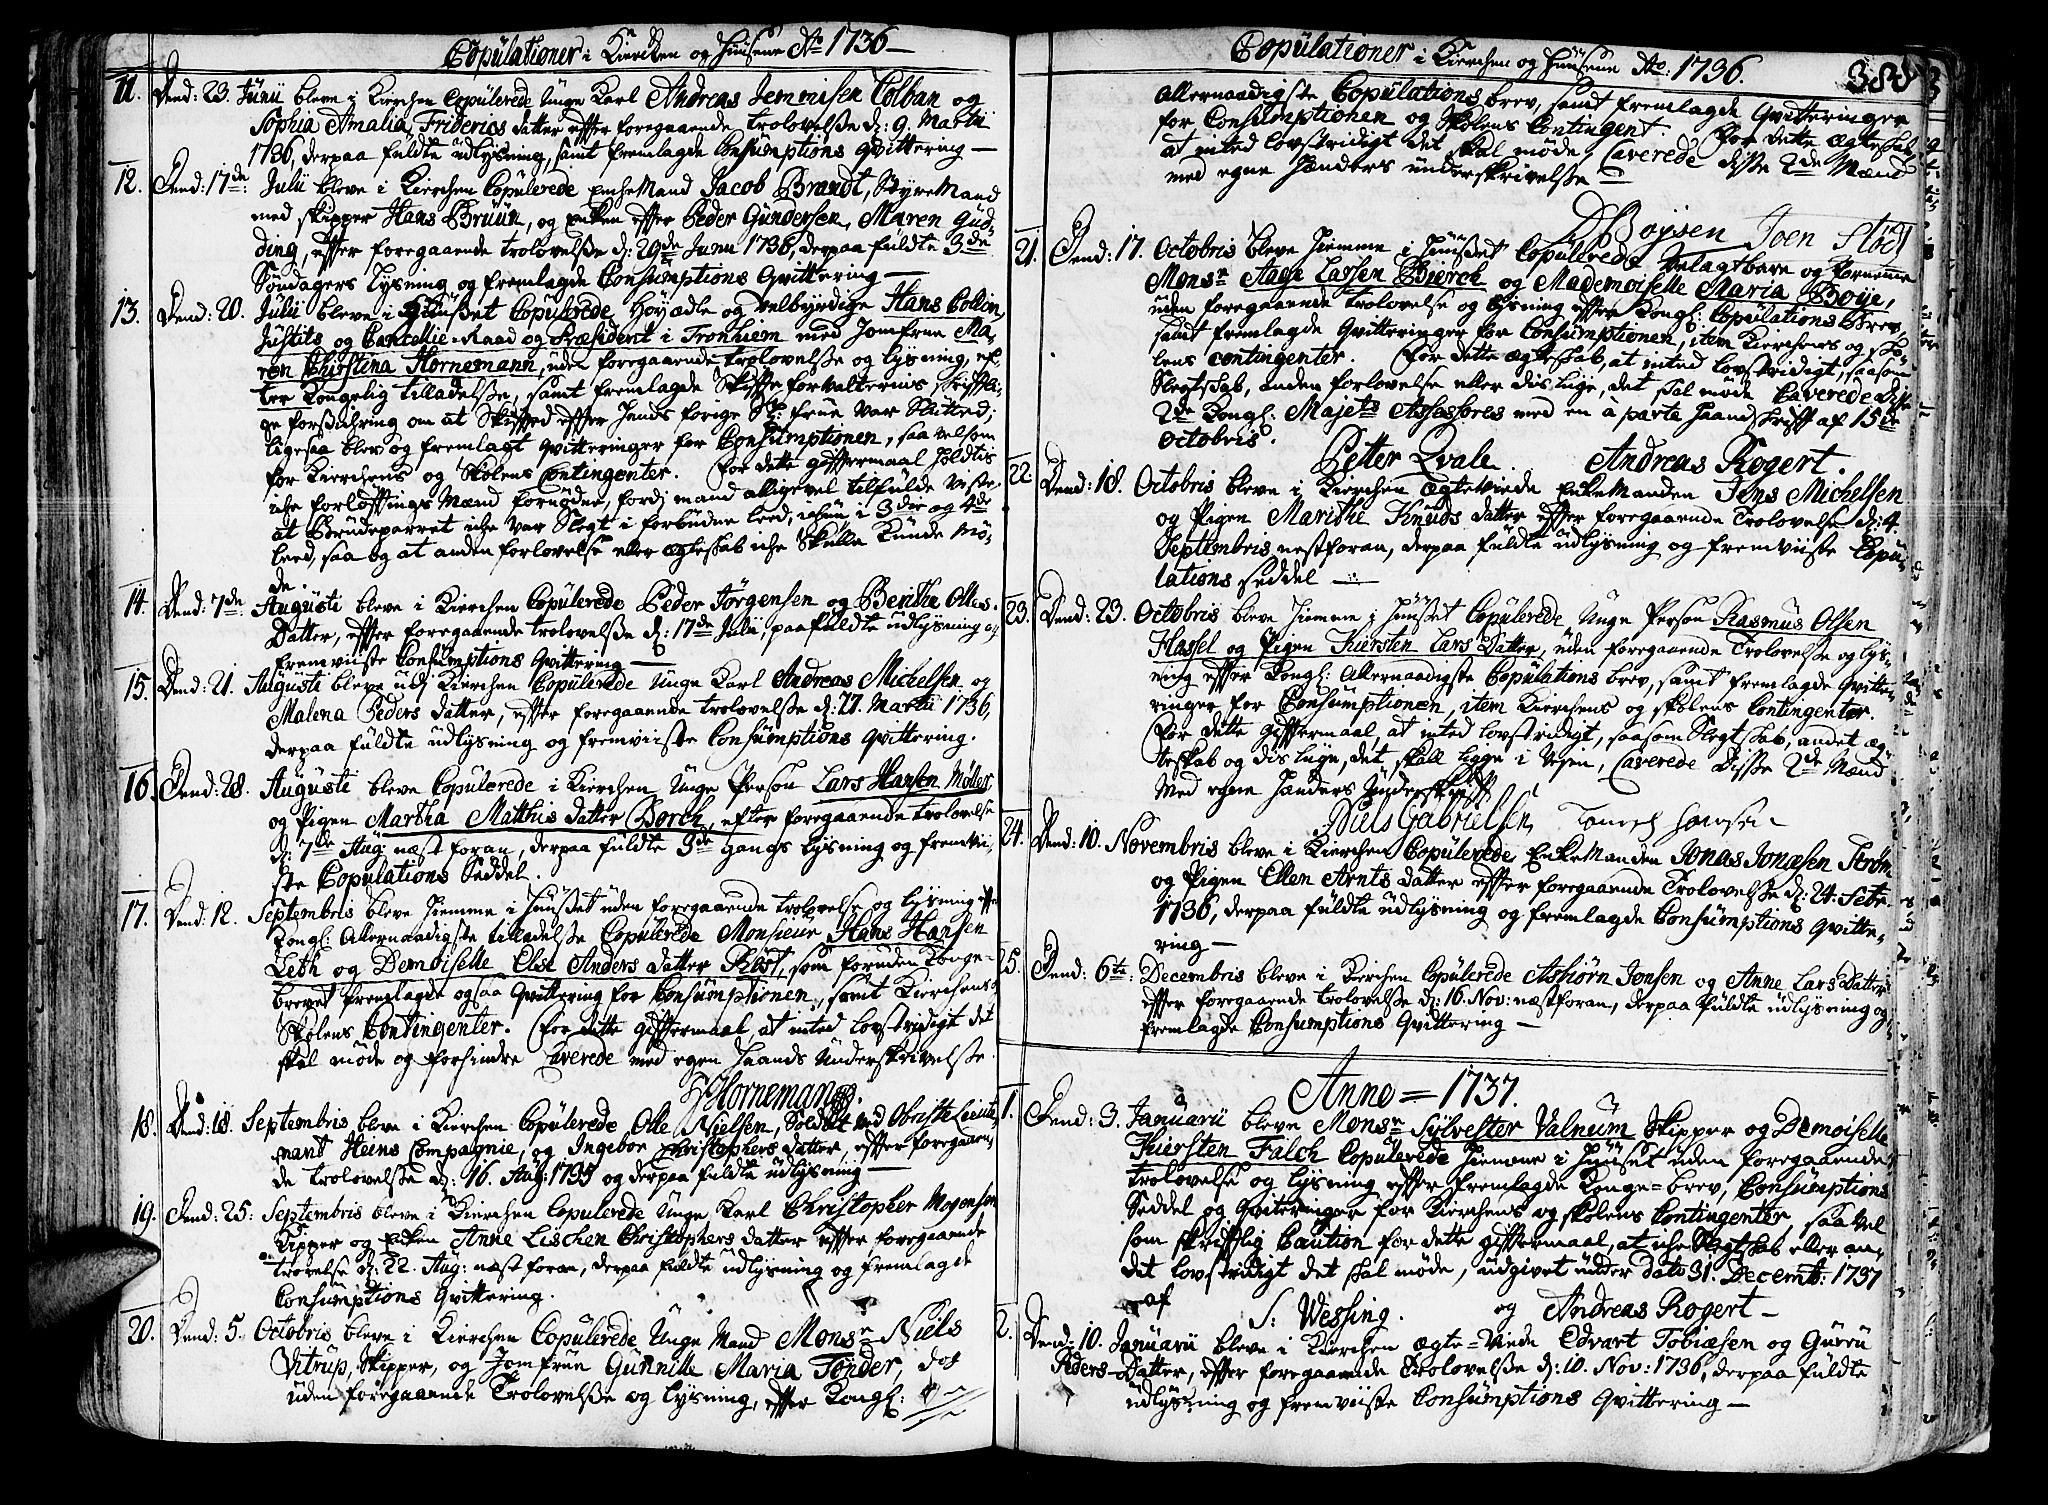 Copulationer i Kirchen og Huusene Ao 1736
11. Dend: 23 Junii bleve i Kirchen Copulerede Unge Karl Andreas Jemmisen Colban og
Sophia Amalia Friderics datter effter foregaaende trolovelse d: 9. Martii
1736, derpaa fuldte udlysning, samt fremlagde Consumptions Qvittering
12. Dend: 17de: Julii bleve i Kirchen Copulerede Enke Mand Jacob Brandt, Styre Mand
med skipper Hans Bruun, og Enken effter Peder Gundersen, Maren Gud-
ding, effter foregaaende trolovelse d: 29de Junii 1736, derpaa fuldte 3de
Søndagers Lysning og fremlagde Consumptions Qvittering
13. Dend: 20. Julii bleve i Huuset Copulerede Høyædle og velbyrdige Hans Coldin
Justits og Cancellie-Raad og Præsident i Tronhiem med Jomfrue Ma-
ren Christina Hornemann, uden foregaaende trolovelse og lysning, ef-
ter Kongelig tilladelse, samt fremlagde Skiffte forvalterens skrifftli-
ge forsichring om at Skifftet effter hands forige Sl: Frue var Slutted;
ligesaa blev og fremlagt Qvitteringer for Consumptionen, saa velsom
for Kirchens og Skolens Contingenter. For dette gifftermaal holdtis
iche forloffnings Mænd fornøden, fordi mand alligevel tilfulde viste
at Brudeparret iche var Slegt i forbudne leed, uden i 3die og 4de
leed, saa og at anden forlovelse eller ægteskab iche skulle kunde mø-
de.
14. Dend: 7de Augusti bleve i Kirchen Copulerede Peder Jørgensen og Berithe Olles
Datter, effter foregaaende trolovelse d: 17de Julii, paafuldte udlysning og
fremviiste Consumptions Qvittering
15. Dend: 21. Augusti bleve udi Kirchen Copulerede Unge Karl Andreas Michelsen og
Malena Peders datter, effter foregaaende trolovelse d: 27. Martii 1736,
derpaa fuldte udlysning og fremviiste Consumptions Qvittering.
16. Dend: 28. Augusti bleve Copulerede i Kirchen Unge Person Lars Hansen Møller
og Pigen Martha Matthis datter Borch, efter foregaaende trolovelse
d: 7de Aug: næst foran, derpaa fuldte 3de gangs lysning og fremvii-
ste Copulations Seddel.
17. Dend: 12. Septembris bleve hiemme i Huuset uden foregaaende trolovelse og lysning effter
Kongl: Allernaadigste tilladelse Copulerede Monsieur Hans Hansen
Leth og Demoiselle Elise Anders datter Röst, som foruden Konge-
brevet fremlagde ogsaa Qvittering for Consumptionen, samt Kirchens
Skolens Contingenter. For dette gifftermaal at inted lovstridigt det
skal møde og forhindre Caverede med egen Haands Underskrivelse.
Hornemann
18. Dend: 18. Septembris bleve i Kirchen Copulerede Olle Nielsen, Soldat ved Obriste Lieute-
nant Heins Compagnie, og Ingebor Christophers datter, effter foregaaen-
de trolovelse d: 16. Aug: 1735 og derpaa fuldte udlysning
19. Dend: 25: Septembris bleve i Kirchen Copulerede Unge Karl Christopher Mogensen
Skipper og Enken Anne Lischen Christophers datter effter foregaaende
trovelse d: 22. Aug: næst foran, derpaa fuldte udlysning og fremlagde
Consumptions Qvittering.
20. Dend: 5. Octobris bleve i Kirchen Copulerede Unge Mand Monsr Niels
Vitrup, Skipper, og Jomfrue Gunnille Maria Tonder, dog
uden foregaaende Trolovelse og lysning, effter Kongl:
Copulationer i Kierchen og Huusene Ao: 1736. 388
Allernaadigste Copulations brev, samt fremlagde Qvitteringer
for Consumptionen og Skolens Contingent. For dette ægteskab,
at inted lovstridigt det skal møde, Caverede disse 2de Mænd
med egne Hænders underskrivelse
D Boysen Joen
21. Dend: 17. Octobris bleve hiemme i Huuset Copulerede Velagtbare og fornemme
Monsr Aage Lassen Biørck og Mademoiselle Maria Boye,
uden foregaaende trolovelse og lysning effter Kongl: Copulations Brev,
samt fremlagde Qvitteringer for Consumptionen, item Kirchens og Sko-
lens Contingenter. For dette ægteskab, at inted lovstridigt, saasom
Slegtskab, anden forlovelse eller dislige, det skal møde Caverede disse
2de Kongl: Majets Assessores med en à parte Haandskrifft af 15de
Octobris.
Petter Qvale. Andreas Rogert.
22. Dend: 18. Octobris bleve i Kirchen Ægteviede Enke Manden Jens Michelsen
og Pigen Marithe Knuds datter effter foregaaende Trolovelse d: 4
Septembris nestforan, derpaa fuldte udlysning og fremviiste Copu-
lations seddel
23. Dend: 23. Octobris bleve hiemme i Huuset Copulerede Unge Person Rasmus Olsen
Hassel og Pigen Kiersten Lars Datter, uden foregaaende Trolovelse og lys-
ning effter Kongl: Allernaadigste Copulations brev, samt fremlagde Qvitte-
ringer for Consumptionen, item Kirchens og skolens Contingenter.
For dette gifftermaal, at inted lovstridigt, saasom Slegtskab, andet æg-
teskab og dislige, det skall ligge i Vejen, Caverede disse 2de Mænd
Med egne Hænders Underskrifft
Niels Gabrielsen
24. Dend: 10. Novembris bleve i Kirchen Copulerede Enke Manden Jonas Jonæsen Strøm
og Pigen Ellen Arnts datter effter foregaaende Trolovelse d: 24. Sebr
1736, derpaa fuldte udlysning og fremlagde Consumptions Qvitte-
ring
25. Dend: 6te: Decembris bleve i Kirchen Copulerede Asbiørn Jonsen og Anne Lars Datter
effter foregaaende trolovelse d: 16. Nov: næstforan, derpaa fuldte udlysning og
fremlagde Consumptions Qvittering
Anno = 1737.
1. Dend: 3. Januarii bleve Monsr Sylvester Valnum Skipper og Demoiselle
Kiersten Falch Copulerede hiemme i Huuset uden foregaaende
trolovelse og lysning effter fremlagde Konge-brev, Consumptions
Seddel og Qviteringer for Kierchens og skolens Contingenter, saa vel
som skrifftlig Caution for dette gifftermaal, at iche Slegtskab eller an-
det lovstridigt det skal møde, udgivet under dato 31. Decemb: 1737
af S: Wessing. og Andreas Rogert
2. Dend: 10. Januarii bleve i Kirchen ægte-Viede Edvart Tobiæsen og Guru
Peders Datter, effter foregaaende Trolovelse d: 10. Nov: 1736, derpaa fuldte
udlysning og fremviiste Consumptions Qvittering